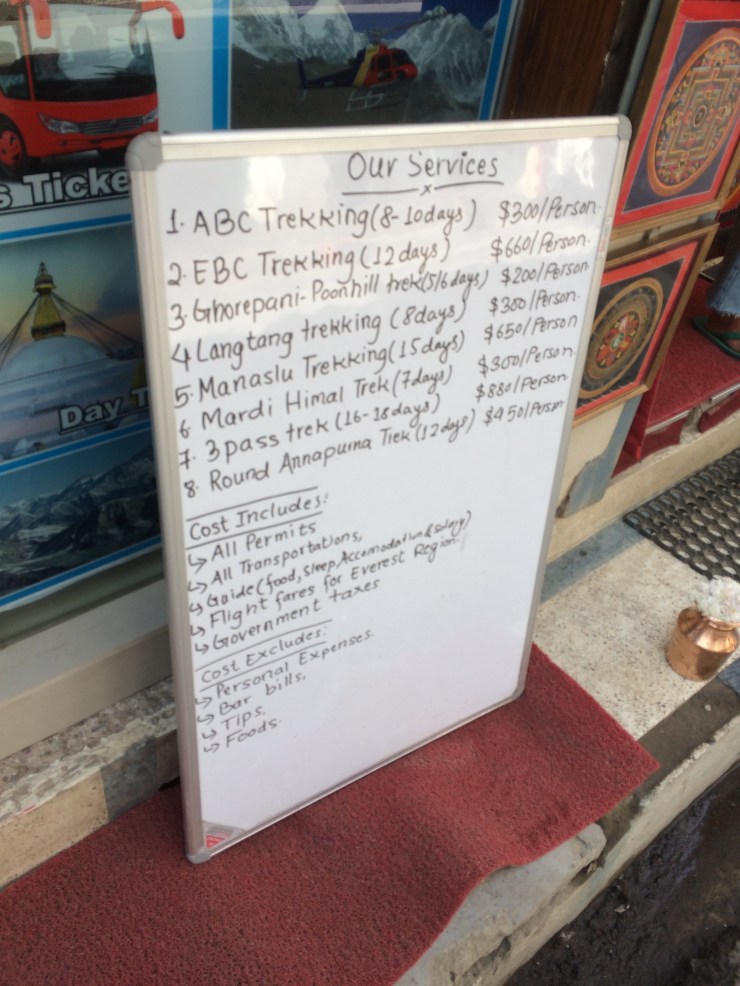 s Ticke
Day T
Our Services
x
1. ABC Trekking (8-10days) $300/Person.
2. EBC Trekking (12 days) $660/Person.
3. Ghorepani-Poonhill trek(5/6 days) $200/Person
4 Langtang trekking (8days) $300/Person.
5. Manaslu Trekking (15days) $650/Person
6 Mardi Himal Trek (7days) $300/Person.
7. 3 pass trek (16-18days) $880/Person
8. Round Annapurna Trek (12 days) $450/Person
Cost Includes:
↳ All Permits
↳ All Transportations,
↳ Guide (food, Sleep, Accomodation & Salary)
↳ Flight fares for Everest Region.
↳ Government taxes
Cost Excludes:
↳ Personal Expenses.
↳ Bar bills,
↳ Tips,
↳ Foods.